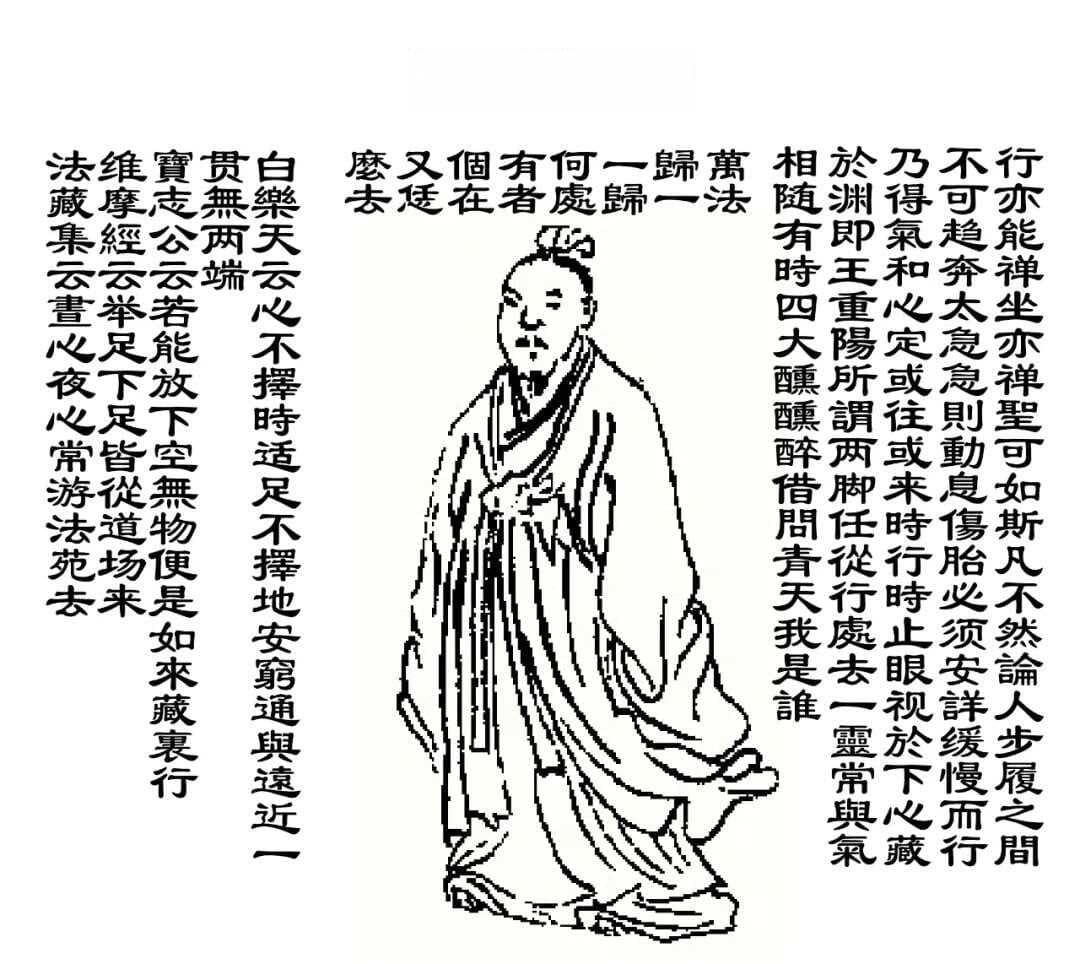 行亦能禅坐亦禅聖可如斯凡不然論人步履之間
不可趋奔太急急則動息傷胎必须安詳缓慢而行
乃得氣和心定或往或来時行時止眼视於下心藏
於渊即王重陽所謂两脚任從行處去一靈常與氣
相随有時四大醺醺醉借問青天我是誰
萬法
歸一
一歸
何處
有者
個在
又恁
麼去
白樂天云心不擇時适足不擇地安窮通與遠近一
贯無两端
寶志公云若能放下空無物便是如來藏裏行
维摩經云举足下足皆從道场来
法藏集云晝心夜心常游法苑去